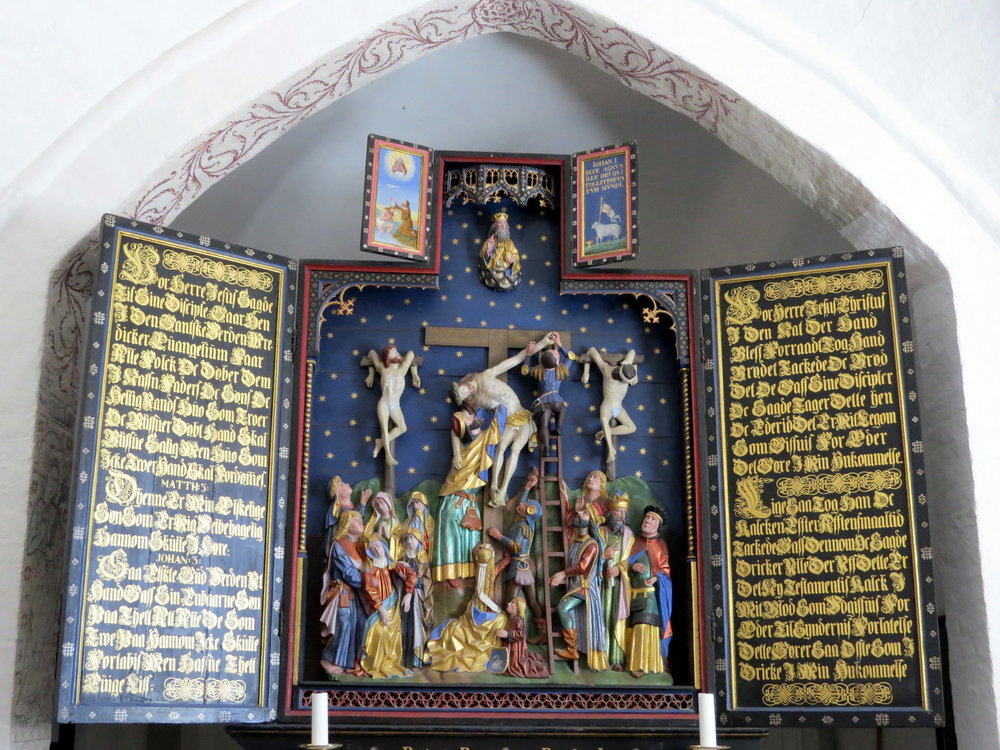 Vor Herre Jesus Sagde
Til Sine Disciple Gaar Hen
I Den Gantske Verden Præ
dicker Evangelium Faar
Alle Folck Oc Døber Dem
I Naffn Faders Oc Søns Oc
Hellig Aands Huo Som Troer
Oc Bliffuer Døbt Hand Skal
Bliffue Salig Men Huo Som
Icke Troer Hand Skal Fordømis.
MATTH: 3:
Denne Er Min Elskelige
Søn Som Er Mig Velbehagelig
Hannom Skulle I Høre:
JOHAN: 3:
Saa Elskte Gud Verden At
Hand Gaff Sin Enbaarne Søn
Paa Thett Att Alle De Som
Troe Paa Hannom Icke Skulle
Fortabis Men Haffue Thett
Euige Liff:
IOHAN I
ECCE AGNVS
ILLE DEI QVI
TOLLIT PECCA
TVM MVNDI
Vor Herre Jesus Christus
I Den Nat Der Hand
Bleff Forraad Tog Hand
Brødet Tackede Oc Brød
Det Oc Gaff Sine Discipler
Oc Sagde Tager Dette Hen
Oc Æder Id Er Mit Legom
Som Giffuis For Eder
Det Giører I Min Hukommelse.
Lige Saa Tog Han Oc
Kalcken Effter Afftens Maaltid
Tackede Gaff Dennom Oc Sagde
Dricker Alle Der Aff Dette Er
Det Ny Testamentis Kalck I
Mit Blod Som Udgiffuis For
Eder Til Syndernis Forladelse
Det Giører Saa Offte Som I
Dricke I Min Hukommelse.